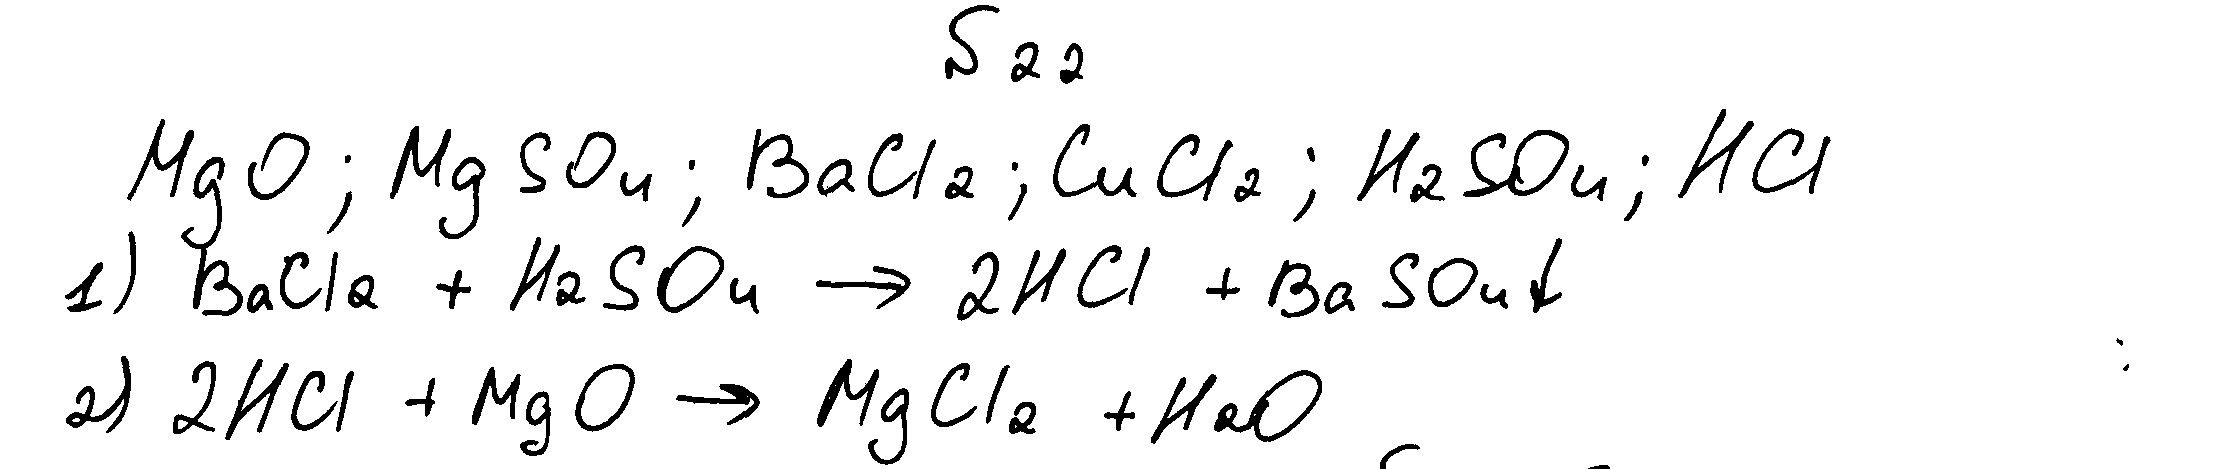 S 22
MgO; MgSO₄; BaCl₂; CuCl₂; H₂SO₄; HCl
1) BaCl₂ + H₂SO₄ → 2HCl + BaSO₄↓
2) 2HCl + MgO → MgCl₂ + H₂O